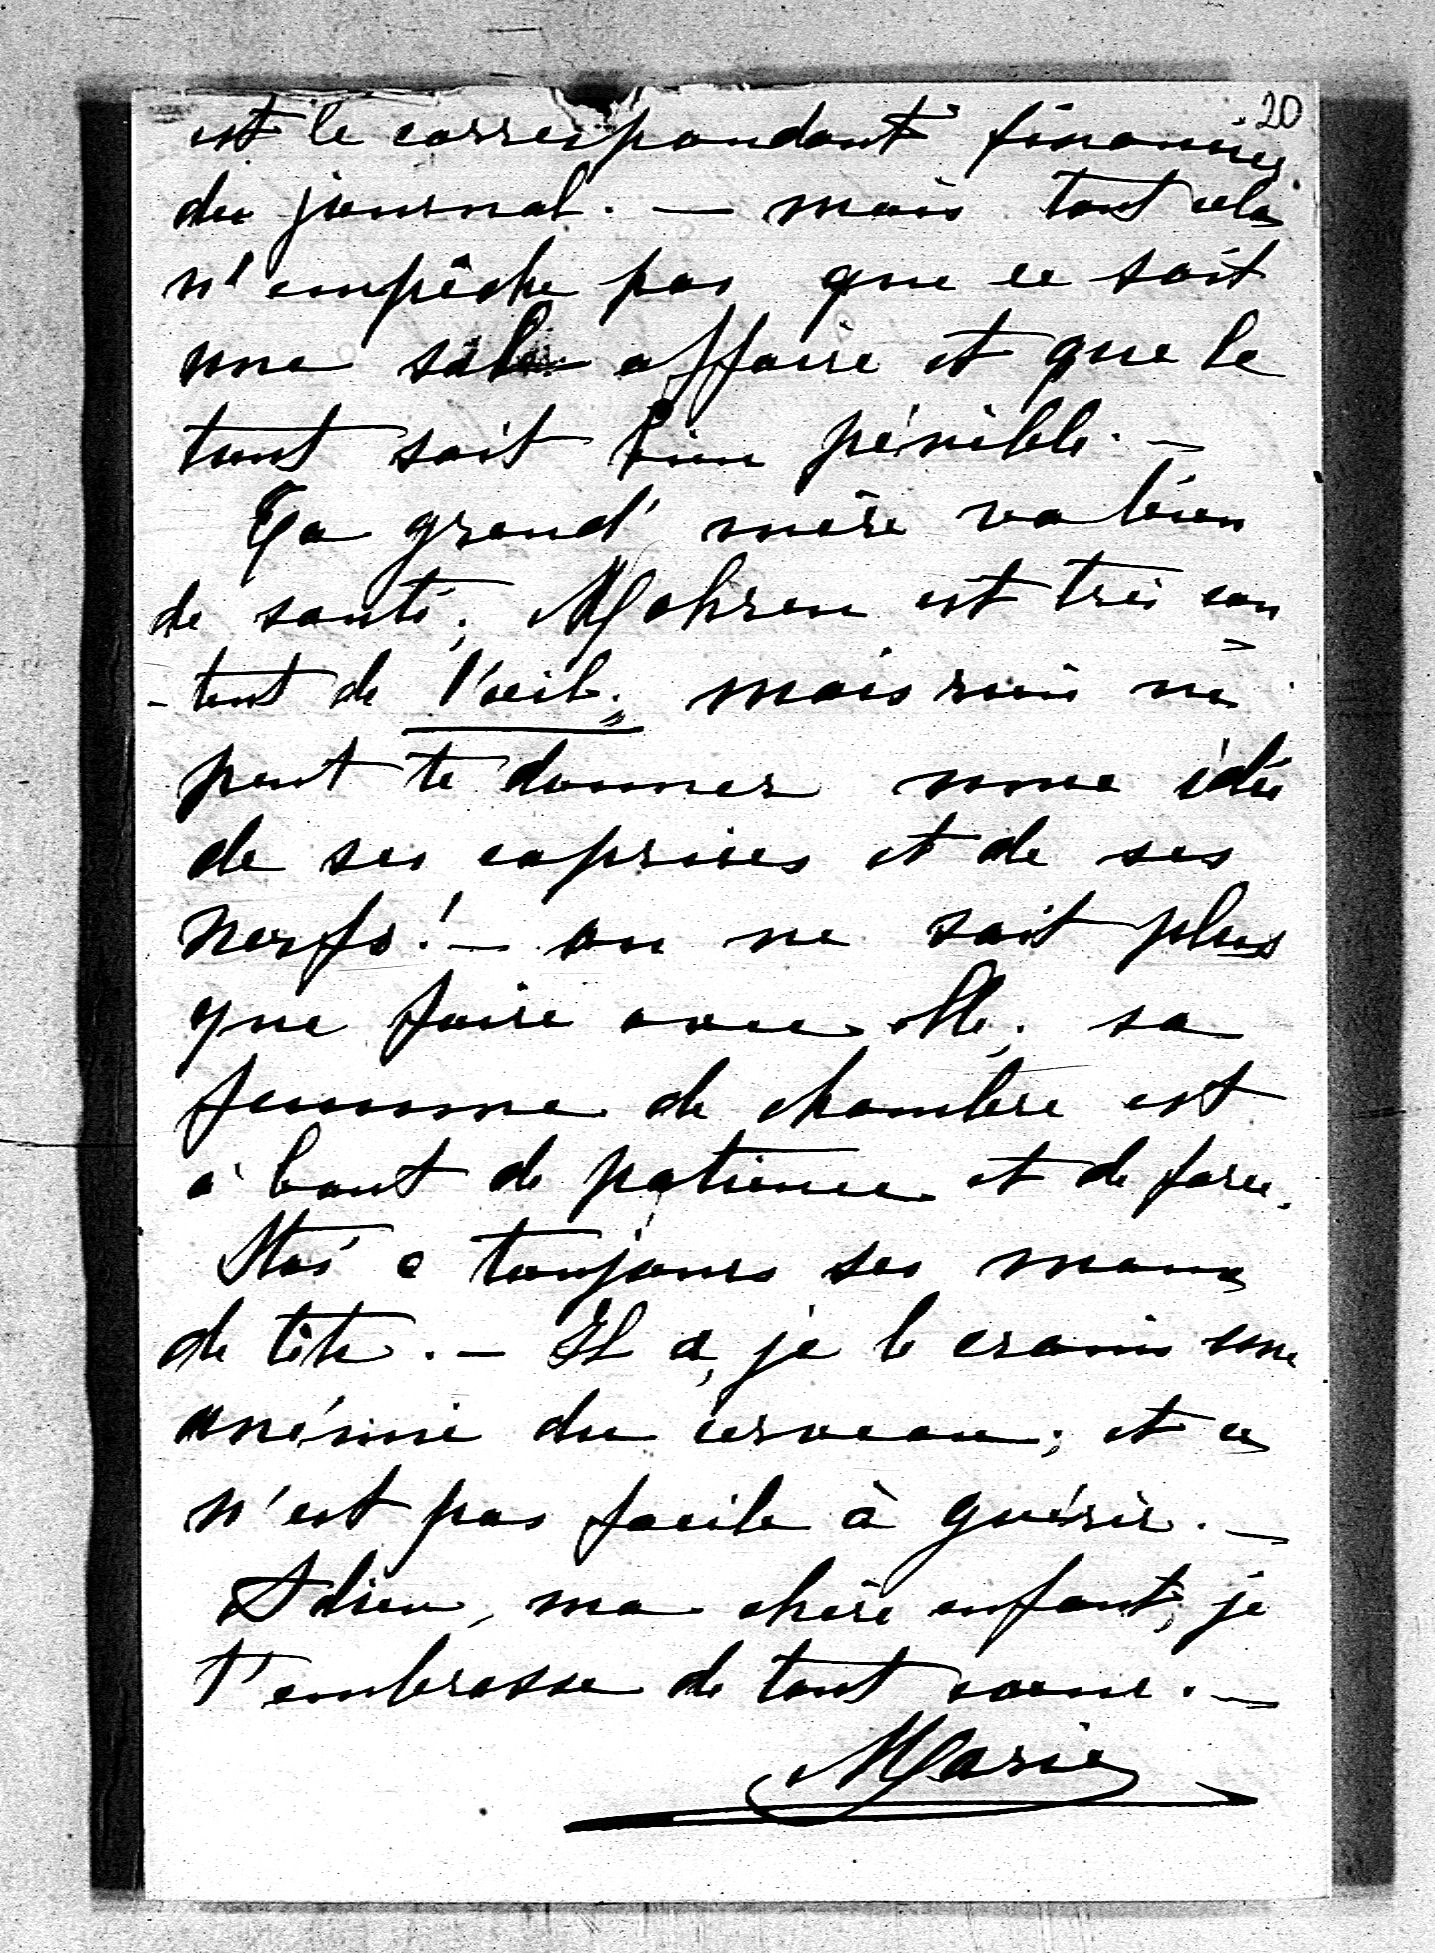 20
est le correspondant financier
du journal. — mais tout cela
n'empêche pas que ce soit
une sale affaire et que le
tout soit bien pénible. —
Ta grand'mère va bien
de santé; Mohren est très con
-tent de l'œil; mais rien ne
peut te donner une idée
de ses caprices et de ses
nerfs! — on ne sait plus
que faire avec elle; sa
femme de chambre est
à bout de patience et de force.
a toujours ses maux
de tête. — Il a, je le crains une
anémie du cerveau; et ce
n'est pas facile à guérir. —
Adieu, ma chère enfant, je
t'embrasse de tout cœur. —
Marie